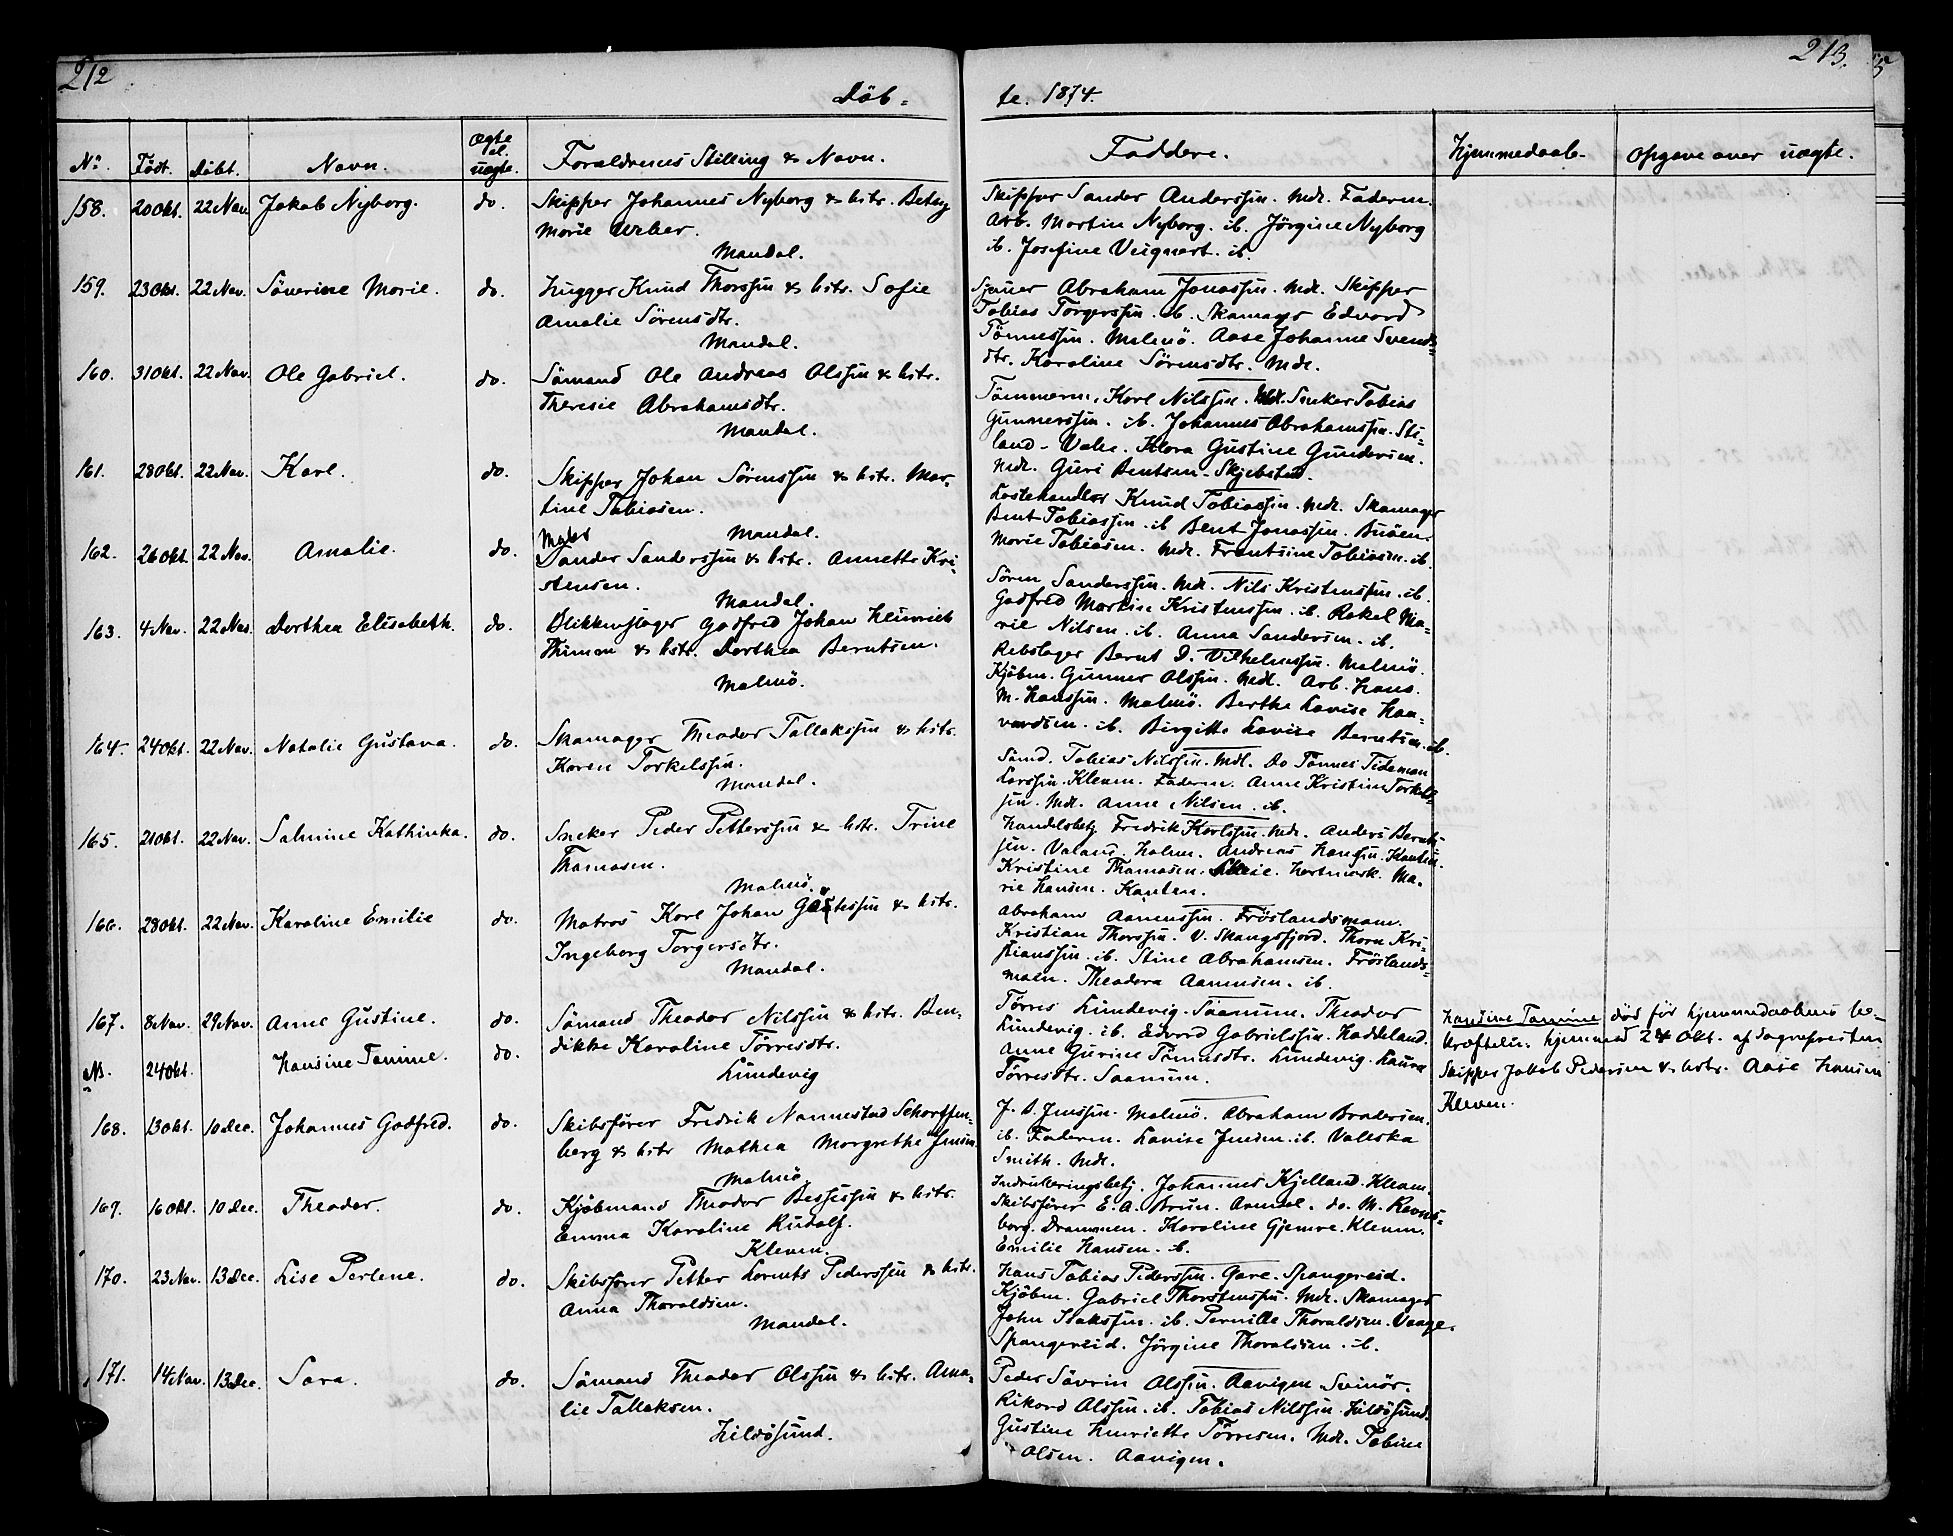 212
213.
Döb-
te. 1874.
No. Födt. Döbt. Navn. Ægte el. uægte. Forældrenes Stilling & Navn.
Faddere. Hjemmedaab. Opgave over uægte.
158. 20 Okt. 22 Nov. Jakob Nyborg. do. Skipper Johannes Nyborg & hstr. Betsy
Marie Weber.
Mandal.
Skipper Sander Anderssøn. Mdl. Faderen.
Arb. Martin Nyborg. ib. Jörgine Nyborg
ib. Josefine ib.
159. 23 Okt. 22 Nov. Sönerine Marie. do. Hugger Knud Thorssøn & hstr. Sofie
Amalie Sörensdtr.
Mandal.
Sjauer Abraham Jonassøn. Mdl. Skipper
Tobias Torgerssøn. ib. Skomager Edvard
Tönnessøn. Malmö. Aase Johanne Svends-
dtr. Karoline Sörensdtr. Mdl.
160. 31 Okt. 22 Nov. Ole Gabriel. do. Sömand Ole Andreas Olssøn & hstr.
Theresie Abrahamsdtr.
Mandal.
Tömmerm. Karl Nilssøn. Mdl. Sneker Tobias
Gunnerssøn. ib. Johannes Abrahamssøn. Sti-
land - Valle. Klara Gustine Gundersen.
Mdl. Guri Bentsen. Skjebstad.
161. 28 Okt. 22 Nov. Karl. do. Skipper Johan Sörenssøn & hstr. Mar-
tine Tobiasen.
Mandal.
Knud Tobiassøn. Mdl. Skomager
Bent Tobiassøn. ib. Bent Jonassøn. Buöen.
Marie Tobiasen. Mdl. Frantsine Tobiasen. ib.
162. 26 Okt. 22 Nov. Amalie. do. Matros
Sander Sanderssøn & hstr. Annette Kri-
stensen.
Mandal.
Sören Sanderssøn. Mdl. Nils Kristenssøn. ib.
Godfred Martin Kristenssøn. ib. Rakel Ma-
rie Nilsen. ib. Anna Sandersen. ib.
163. 4 Nov. 22 Nov. Dorthea Elisabeth. do. Blikkenslager Godfred Johan Heinrich
Thimm & hstr. Dorthea Berntsen.
Malmö.
Rebslager Bernt D. Vilhelmssøn. Malmö.
Kjöbm. Gunner Olssøn. Mdl. Arb. Hans
M. Hanssøn. Malmö. Berthe Lovise Han-
vardsen. ib. Birgitte Lovise Berntsen. ib.
164. 24 Okt. 22 Nov. Natalie Gustava. do. Skomager Theodor Tallakssøn & hstr.
Karen Torkelssøn.
Mandal.
Sömd. Tobias Nilssøn. Mdl. Do Tönnes Tideman
Larssøn. Kleven. Faderen. Anne Kristine Torkels-
søn. Mdl. Anne Nilsen. ib.
165. 21 Okt. 22 Nov. Salmine Kathinka. do. Sneker Peder Petterssøn & hstr. Trine
Thomasen.
Malmö.
Handelsbetj. Fredrik Karlssøn. Mdl. Anders Bernts-
søn. Valand. Holum. Andreas Hanssøn. Kanten.
Kristine Thomasen. Hartmark. Ma-
rie Hansen. Kanten.
166. 28 Okt. 22 Nov. Karoline Emilie do. Matros Karl Johan & hstr.
Ingeborg Torgersdtr.
Mandal.
Abraham Aanenssøn. Fröslandsmoen.
Kristian Thorssøn. V. Skongsfjord. Thora Kri-
stianssøn. ib. Stine Abrahamsen. Fröslands-
moen. Theodora Aanensen. ib.
167. 8 Nov. 29 Nov. Anne Gustine. do. Sömand Theodor Nilssøn & hstr. Ben-
dikke Karoline Törresdtr.
Lundevig
Törres Lundevig. Saanum. Theodor
Lundevig. ib. Edvard Gabrielssøn. Haddeland.
Anne Gurine Tönnesdtr. Lundevig. Laura
Törresdtr. Saanum.
N. 24 Okt. Hansine Tomine. do.
Hansine Tomine död för hjemmedaabens be-
kræftelse. hjemmed 24 Okt. af Sognepresten
Skipper Jakob Pedersen & hstr. Aase Hansen
Kleven.
168. 13 Okt. 10 Dec. Johannes Godfred. do. Skibsförer Fredrik Nannestad Schortsen-
berg & hstr Mathea Margrethe Jensen
Malmö
J. B. Jenssøn. Malmö. Abraham Brodersen.
ib. Faderen. Lovise Jensen. ib. Valeska
Smith. Mdl.
169. 16 Okt. 10 Dec. Theodor. do. Kjöbmand Theodor Bessesøn & hstr.
Emma Karoline Rudolf.
Kleven.
Inrulleringsbetj. Johannes Kjelland. Kleven.
Skibsförer E. A. Brun. Arendal. do. M. Ravns-
borg. Drammen. Karoline Gjemre. Kleven.
Emilie Hansen. ib.
170. 23 Nov. 13 Dec. Lise Perlene. do. Skibsförer Petter Lorents Pederssøn & hstr.
Anna Thoraldsen.
Mandal.
Hans Tobias Pederssøn. Gare. Spangereid.
Kjöbm. Gabriel Thorstenssøn. Mdl. Skomager
John Isakssøn. ib. Pernille Thoraldsen. Vaage.
Spangereid. Jörgine Thoraldsen. ib.
171. 14 Nov. 13 Dec. Sara. do. Sömand Theodor Olssøn & hstr. Ama-
lie Tallaksen.
Hildösund.
Peder Sövrin Olssøn. Aavigen Svinör.
Rikard Olssøn. ib. Tobias Nilssøn. Hildösund.
Gustine Henriette Törresen. Mdl. Tobine
Olsen. Aavigen.